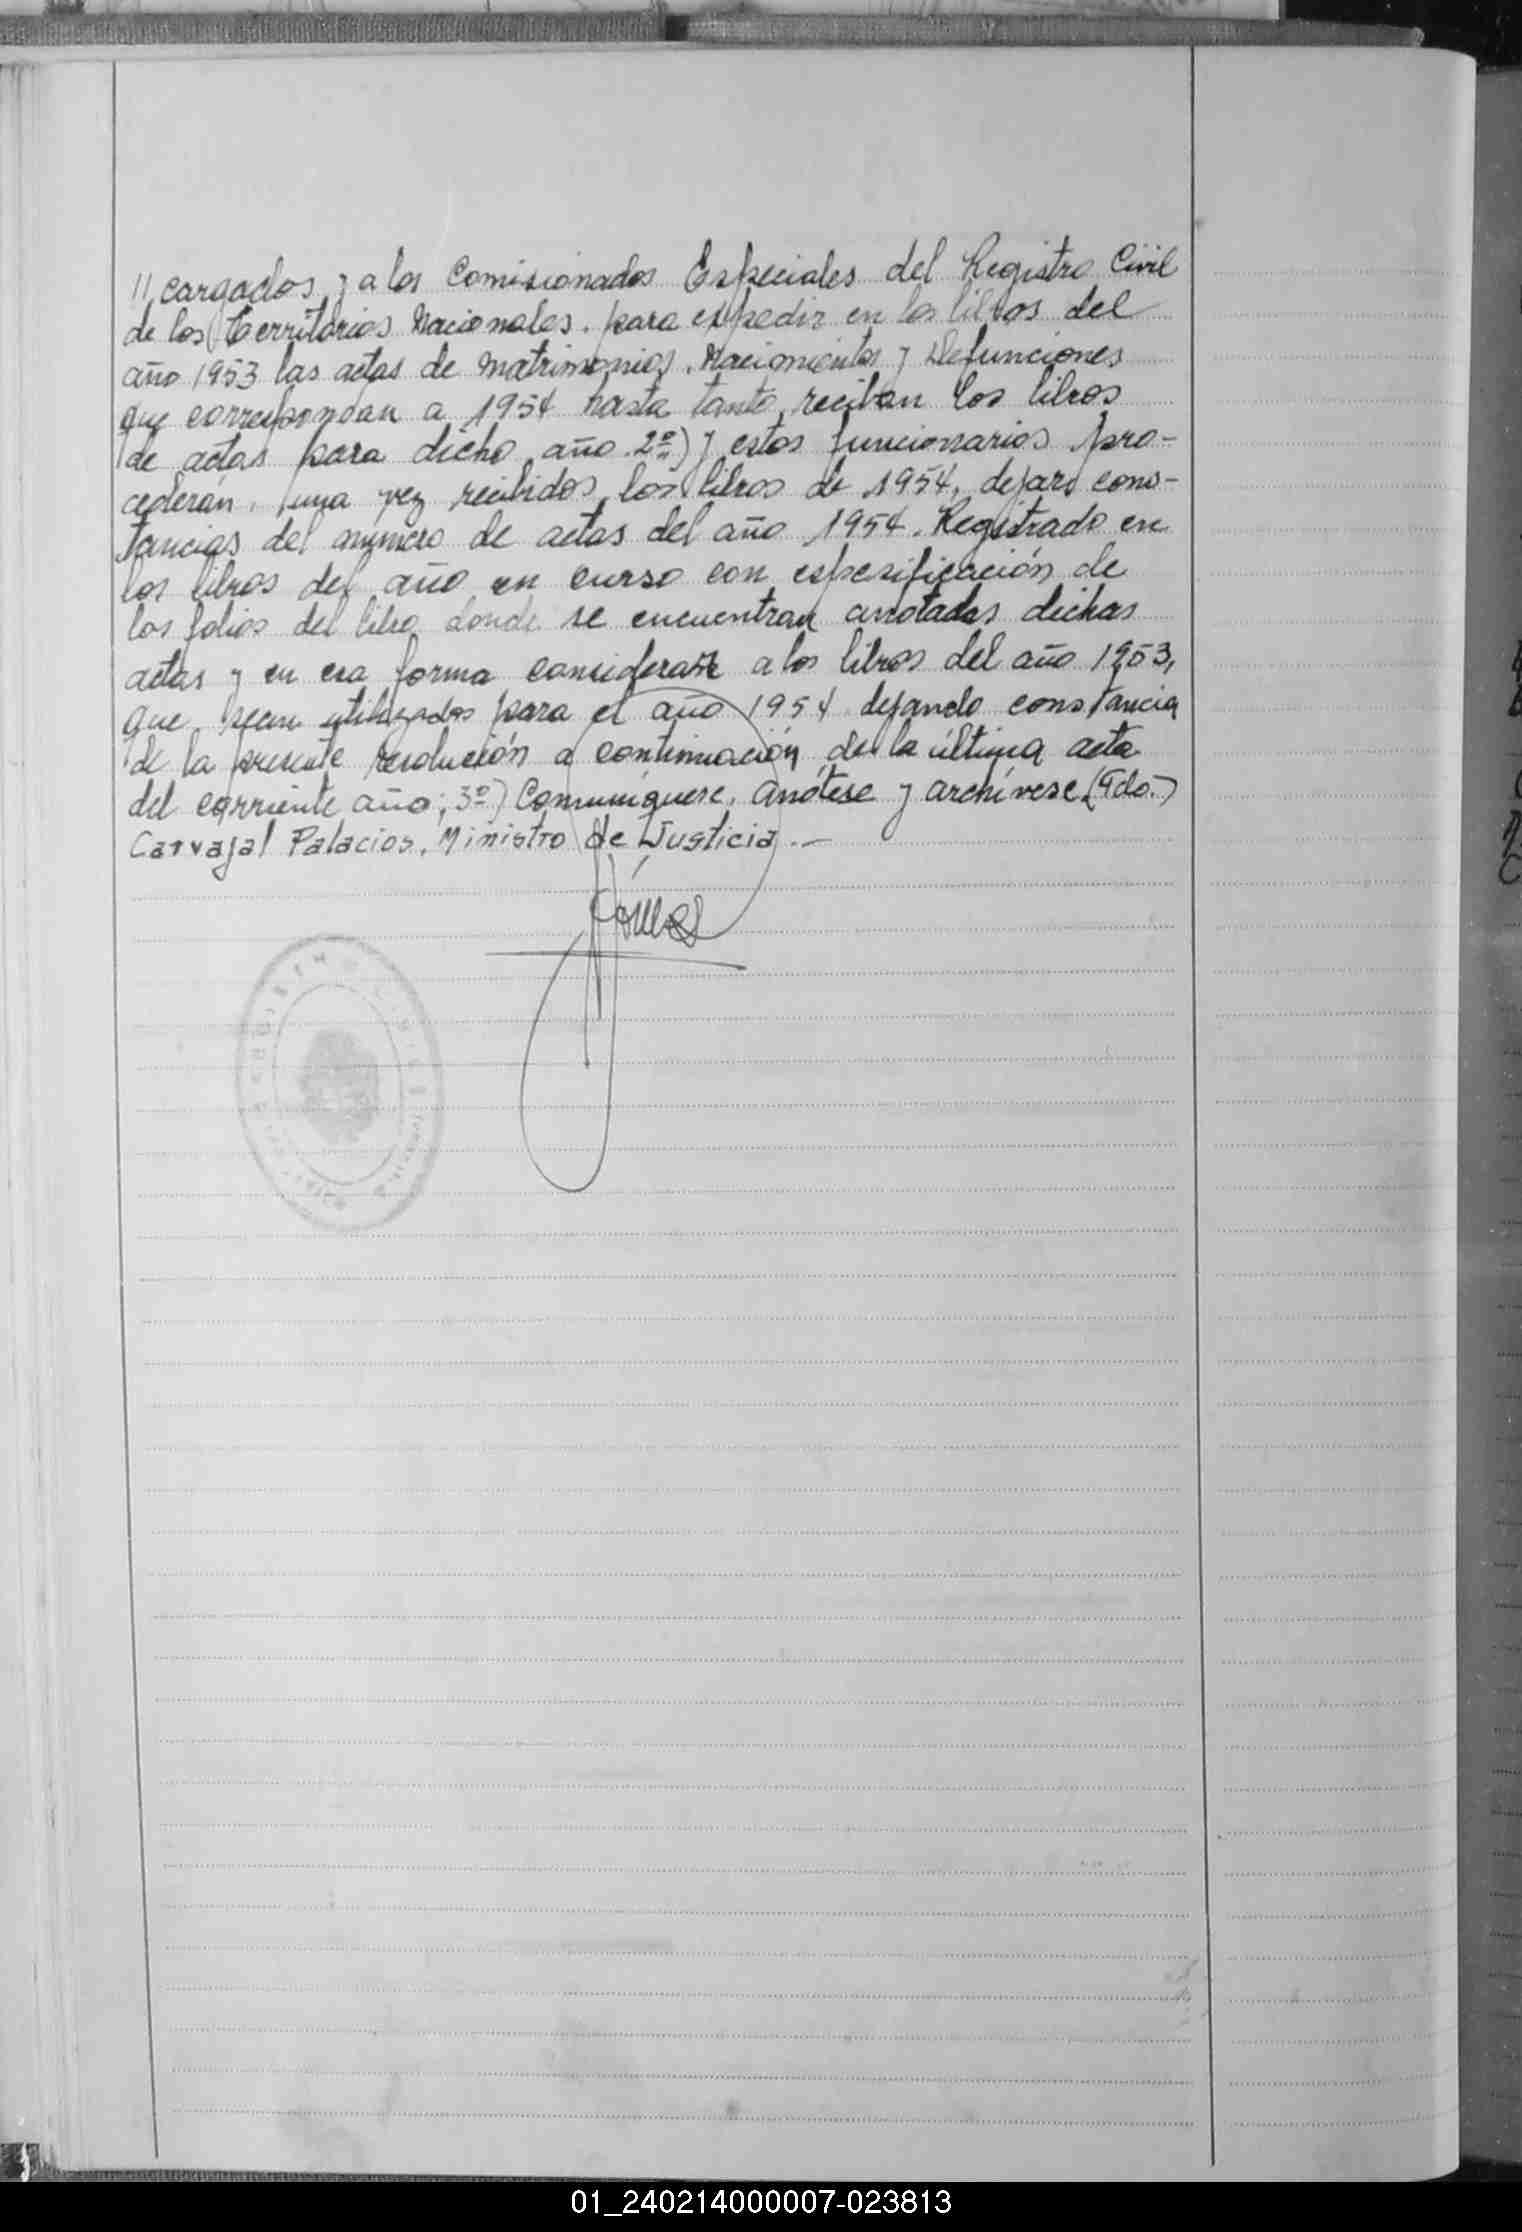 // cargados y a los Comisionados Especiales del Registro Civil
de los Territorios Nacionales. para expedir en los libros del
año 1953 las actas de matrimonios, Nacimientos y Defunciones
que correspondan a 1954 hasta tanto reciban los libros
de actas para dicho año. 2º) y estos funcionarios pro-
cederán, una vez recibidos los libros de 1954, dejar cons-
tancias del numero de actas del año 1954. Registrado en
los libros del año en curso con espesificación de
los folios del libro donde se encuentran anotadas dichas
actas y en esa forma considerar a los libros del año 1953,
que sean utilizados para el año 1954 dejando constancia
de la presente resolución a continuación de la última acta
del corriente año; 3º) Comuníquese, anótese y archívese. (Fdo.)
Carvajal Palacios, Ministro de Justicia.—
01_240214000007-023813